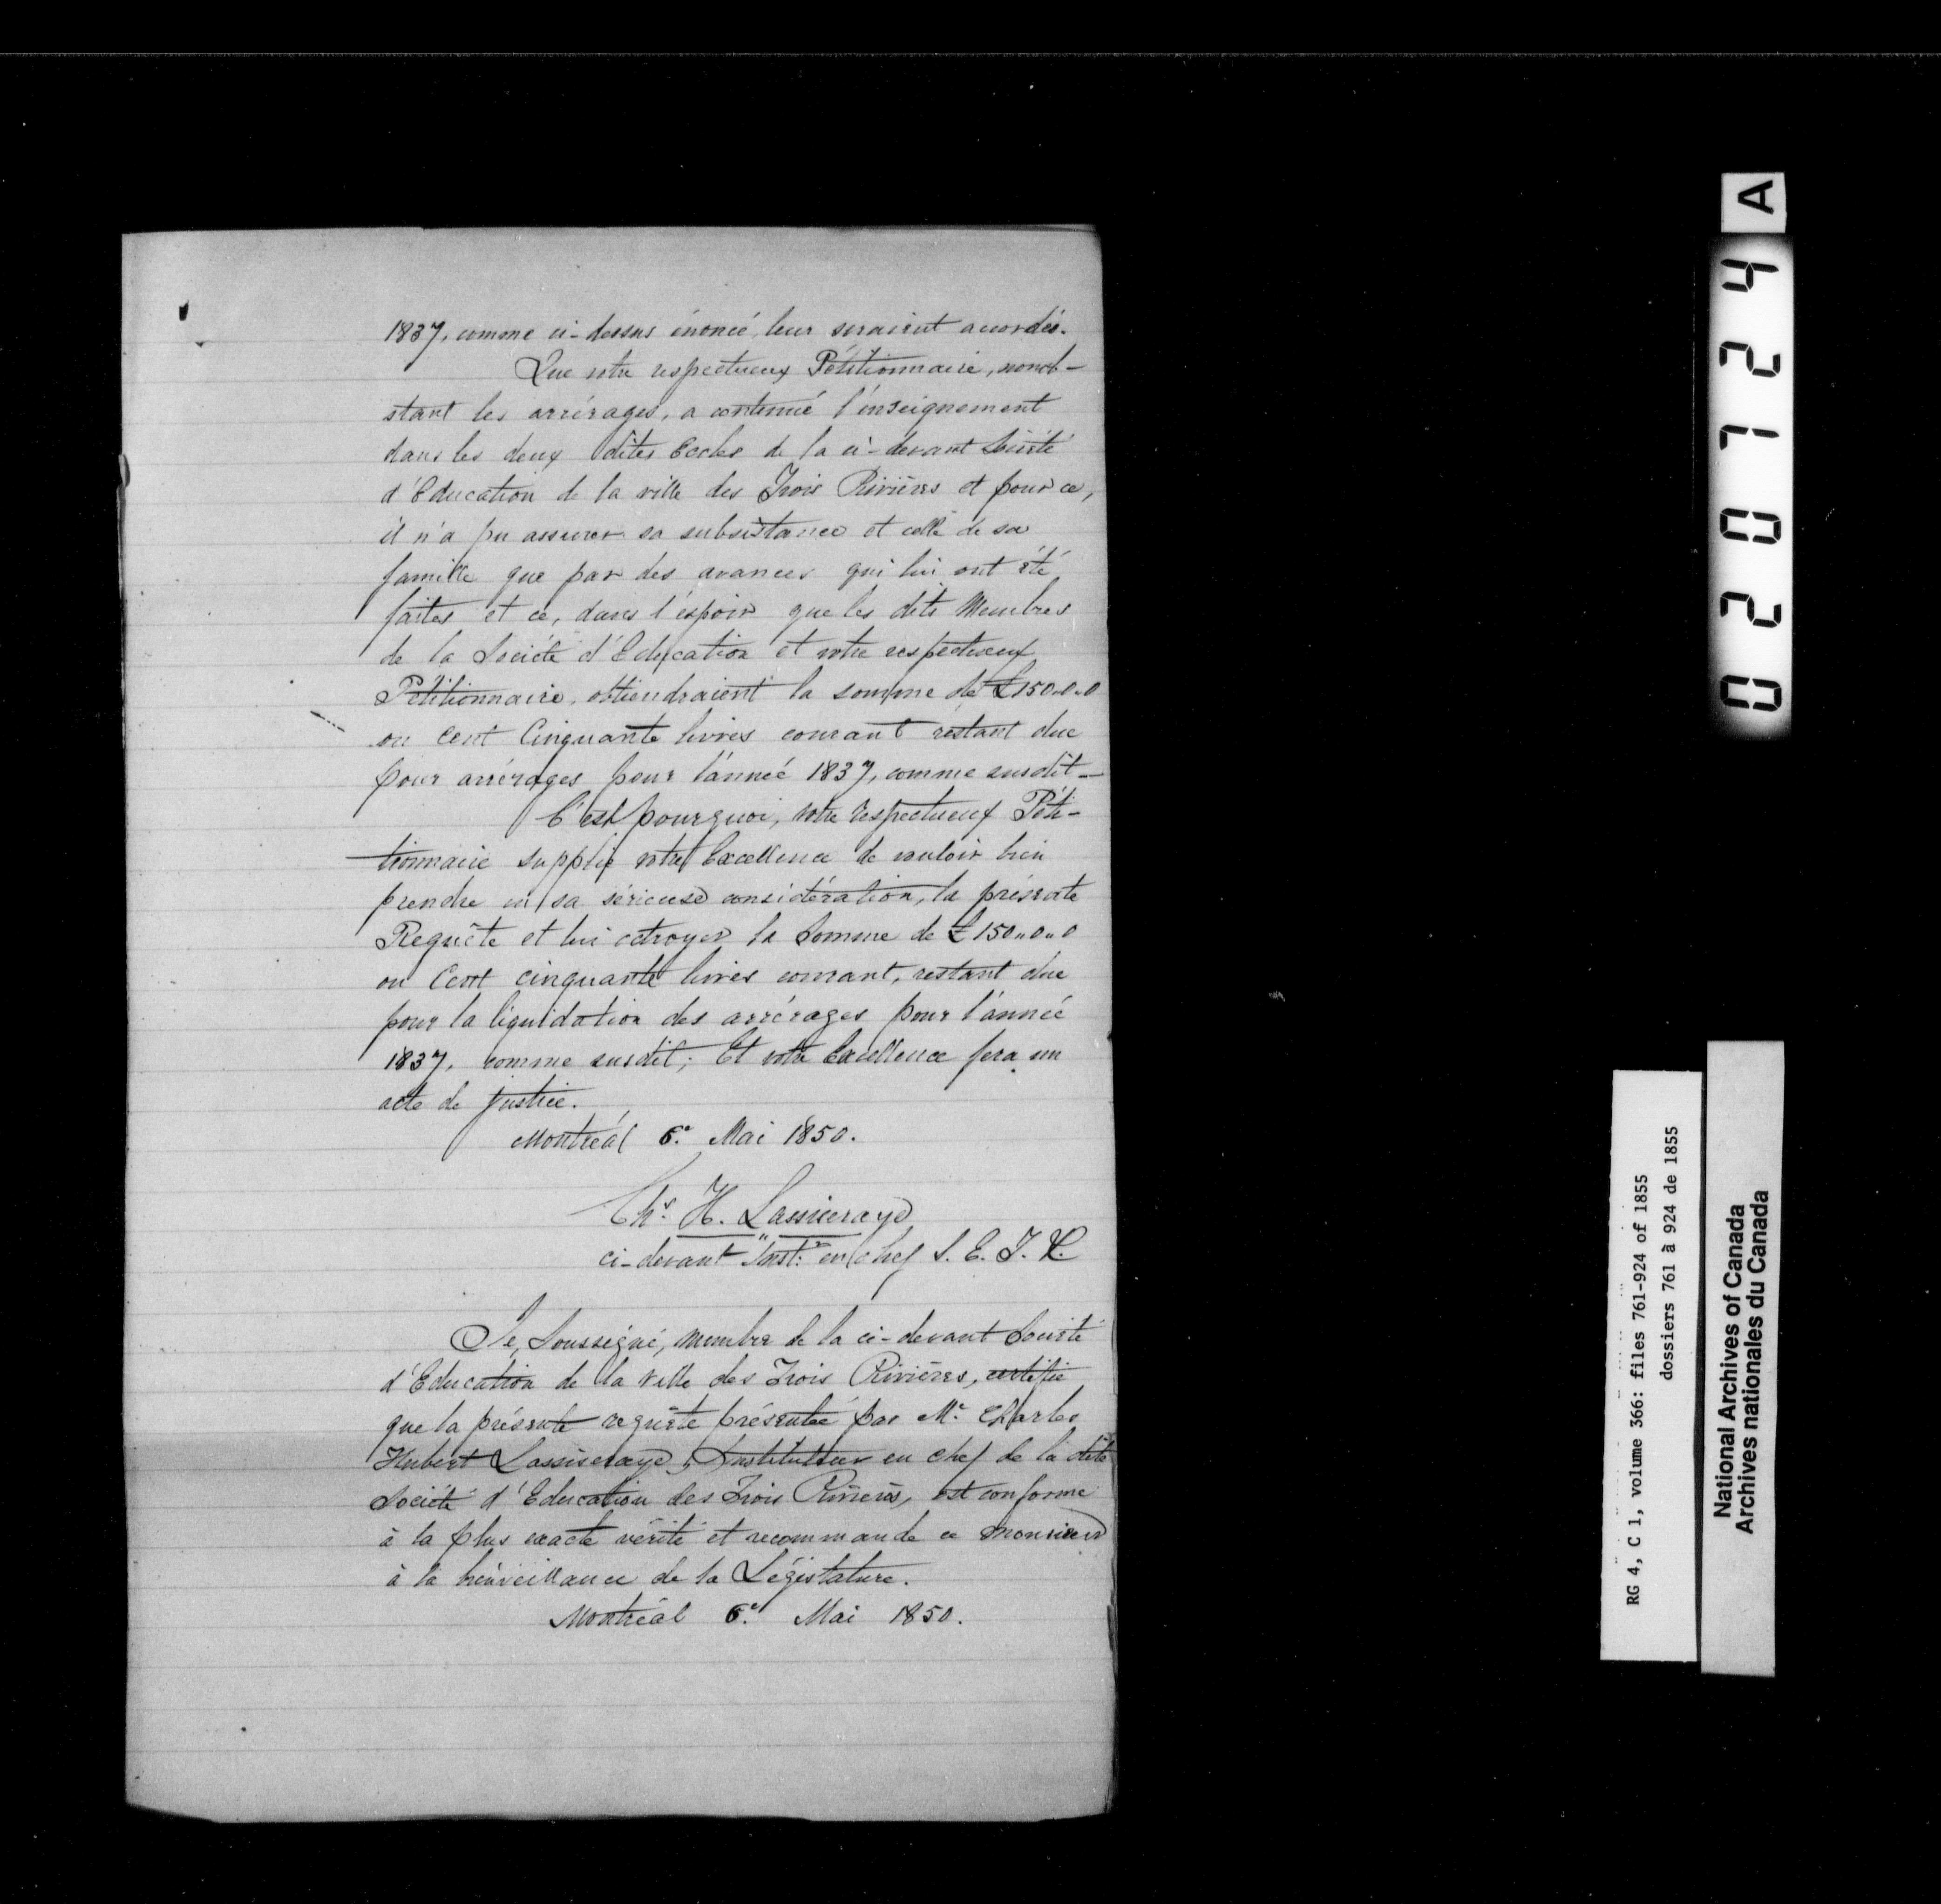 1837, comme ci-dessus énoncé, leur seraient accordés.
Que votre respectueux Pétitionnaire, nonob-
stant les arrérages, a continué l'enseignement
dans les deux dites Ecoles de la ci-devant Société
d'Education de la ville des Trois Rivières et pour ce,
il n'a pu assurer sa subsistance et celle de sa
famille que par des avances qui lui ont été
faites et ce, dans l'espoir que les dits Membres
de la Société d'Education et votre respectueux
Pétitionnaire, obtiendraient la somme de £150..0..0
ou Cent Cinquante livres courant restant due
pour arrérages pour l'année 1837, comme susdit_
C'est pourquoi, votre respectueux Péti-
tionnaire supplie votre Excellence de vouloir bien
prendre en sa sérieuse considération, la présente
Requête et lui octroyer la Somme de £150..0..0
ou Cent cinquante livres courant, restant due
pour la liquidation des arrérages pour l'année
1837, comme susdit; Et votre Excellence fera un
acte de justice.
Montréal 6e. Mai 1850.
Chs. H. Lassiseraye
ci-devant Instr. en chef S. E. T. R.
Je, Soussigné, membre de la ci-devant Société
d'Education de la ville des Trois Rivières, certifie
que la présente requête présentée par Mr. Charles
Hubert Lassiseraye, Instituteur en chef de la dite
Société d'Education des Trois Rivières, est conforme
à la plus exacte vérité et recommande ce monsieur
à la bienveillance de la Législature.
Montréal 6e. Mai 1850.
020724 A
RG 4, C 1, volume 366: files 761-924 of 1855
dossiers 761 à 924 de 1855
National Archives of Canada
Archives nationales du Canada